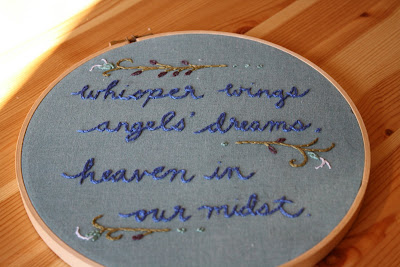 whisper wings
angels' dreams.
heaven in
our midst.